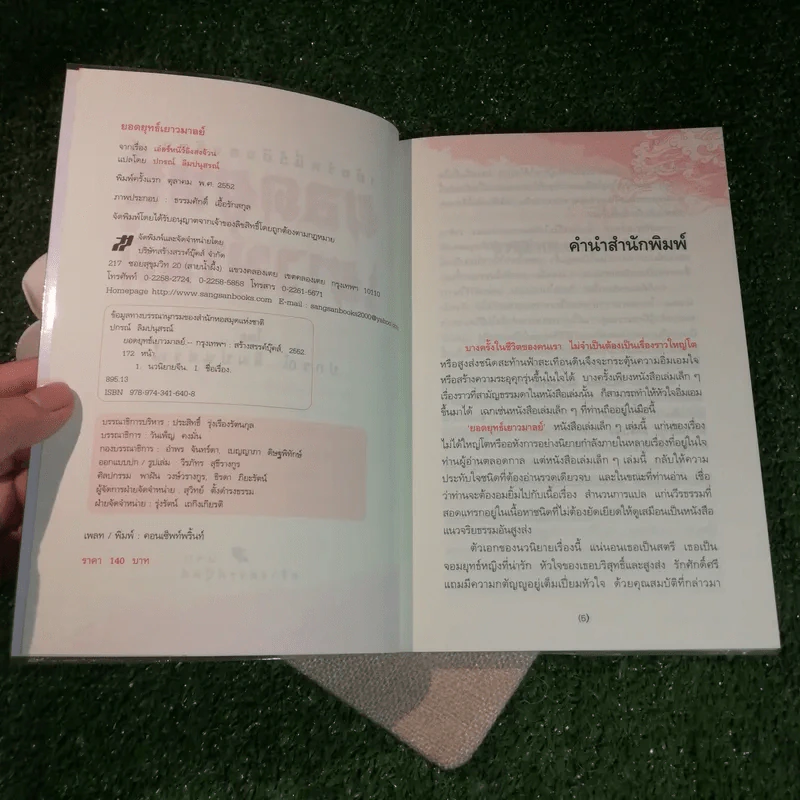 ยอดยุทธ์เยาวมาลย์
จากเรื่อง
แปลโดย ปกรณ์ ลิมปนุสรณ์
พิมพ์ครั้งแรก ตุลาคม พ.ศ. 2552
ภาพประกอบ : ธรรมศักดิ์ เอื้อรักสกุล
จัดพิมพ์โดยได้รับอนุญาตจากเจ้าของลิขสิทธิ์โดยถูกต้องตามกฎหมาย
จัดพิมพ์และจัดจำหน่ายโดย
บริษัทสร้างสรรค์บุ๊คส์ จำกัด
217 ซอยสุขุมวิท 20 (สายน้ำผึ้ง) แขวงคลองเตย เขตคลองเตย กรุงเทพฯ 10110
โทรศัพท์ 0-2258-2724, 0-2258-5858 โทรสาร 0-2261-5871
Homepage http://www.sangsanbooks.com E-mail : sangsanbooks2000@yahoo.com
ข้อมูลทางบรรณานุกรมของสำนักหอสมุดแห่งชาติ
ปกรณ์ ลิมปนุสรณ์
ยอดยุทธ์เยาวมาลย์ -- กรุงเทพฯ : สร้างสรรค์บุ๊คส์, 2552
172 หน้า
1. นวนิยายจีน. I. ชื่อเรื่อง.
895.13
ISBN 978-974-341-640-8
บรรณาธิการบริหาร : ประสิทธิ์ รุ่งเรืองรัตนกุล
บรรณาธิการ : วันเพ็ญ คงมั่น
กองบรรณาธิการ : อำพร จันทร์ตา, เบญญาภา ดิษฐพิทักษ์
ออกแบบปก / รูปเล่ม : วีรภัทร สุธีรางกูร
ศิลปกรรม : พาฝัน วงษ์วรางกูร, ธีรดา ภิยะรัตน์
ผู้จัดการฝ่ายจัดจำหน่าย : สุวิทย์ ตั้งดำรงธรรม
ฝ่ายจัดจำหน่าย : รุ่งรัตน์ เถกิงเกียรติ
เพลท / พิมพ์ : คอนเซ็พท์พริ้นท์
ราคา 140 บาท
คำนำสำนักพิมพ์
บางครั้งในชีวิตของคนเรา ไม่จำเป็นต้องเป็นเรื่องราวใหญ่โต
หรือสูงส่งชนิดสะท้านฟ้าสะเทือนดินจึงจะกระตุ้นความอิ่มเอมใจ
หรือสร้างความระอุคุกรุ่นขึ้นในใจได้ บางครั้งเพียงหนังสือเล่มเล็ก ๆ
เรื่องราวที่สามัญธรรมดาในหนังสือเล่มนั้น ก็สามารถทำให้หัวใจอิ่มเอม
ขึ้นมาได้ เฉกเช่นหนังสือเล่มเล็ก ๆ ที่ท่านถืออยู่ในมือนี้
'ยอดยุทธ์เยาวมาลย์' หนังสือเล่มเล็ก ๆ เล่มนี้ แก่นของเรื่อง
ไม่ได้ใหญ่โตหรืออหังการอย่างนิยายกำลังภายในหลายเรื่องที่อยู่ในใจ
ท่านผู้อ่านตลอดกาล แต่หนังสือเล่มเล็ก ๆ เล่มนี้ กลับให้ความ
ประทับใจชนิดที่ต้องอ่านรวดเดียวจบ และในขณะที่ท่านอ่าน เชื่อ
ว่าท่านจะต้องอมยิ้มไปกับเนื้อเรื่อง สำนวนการแปล แก่นวีรธรรมที่
สอดแทรกอยู่ในเนื้อหาชนิดที่ไม่ต้องยัดเยียดให้ดูเสมือนเป็นหนังสือ
แนวจริยธรรมอันสูงส่ง
ตัวเอกของนวนิยายเรื่องนี้ แน่นอนเธอเป็นสตรี เธอเป็น
จอมยุทธ์หญิงที่น่ารัก หัวใจของเธอบริสุทธิ์และสูงส่ง รักศักดิ์ศรี
แถมมีความกตัญญูอยู่เต็มเปี่ยมหัวใจ ด้วยคุณสมบัติที่กล่าวมา
(5)